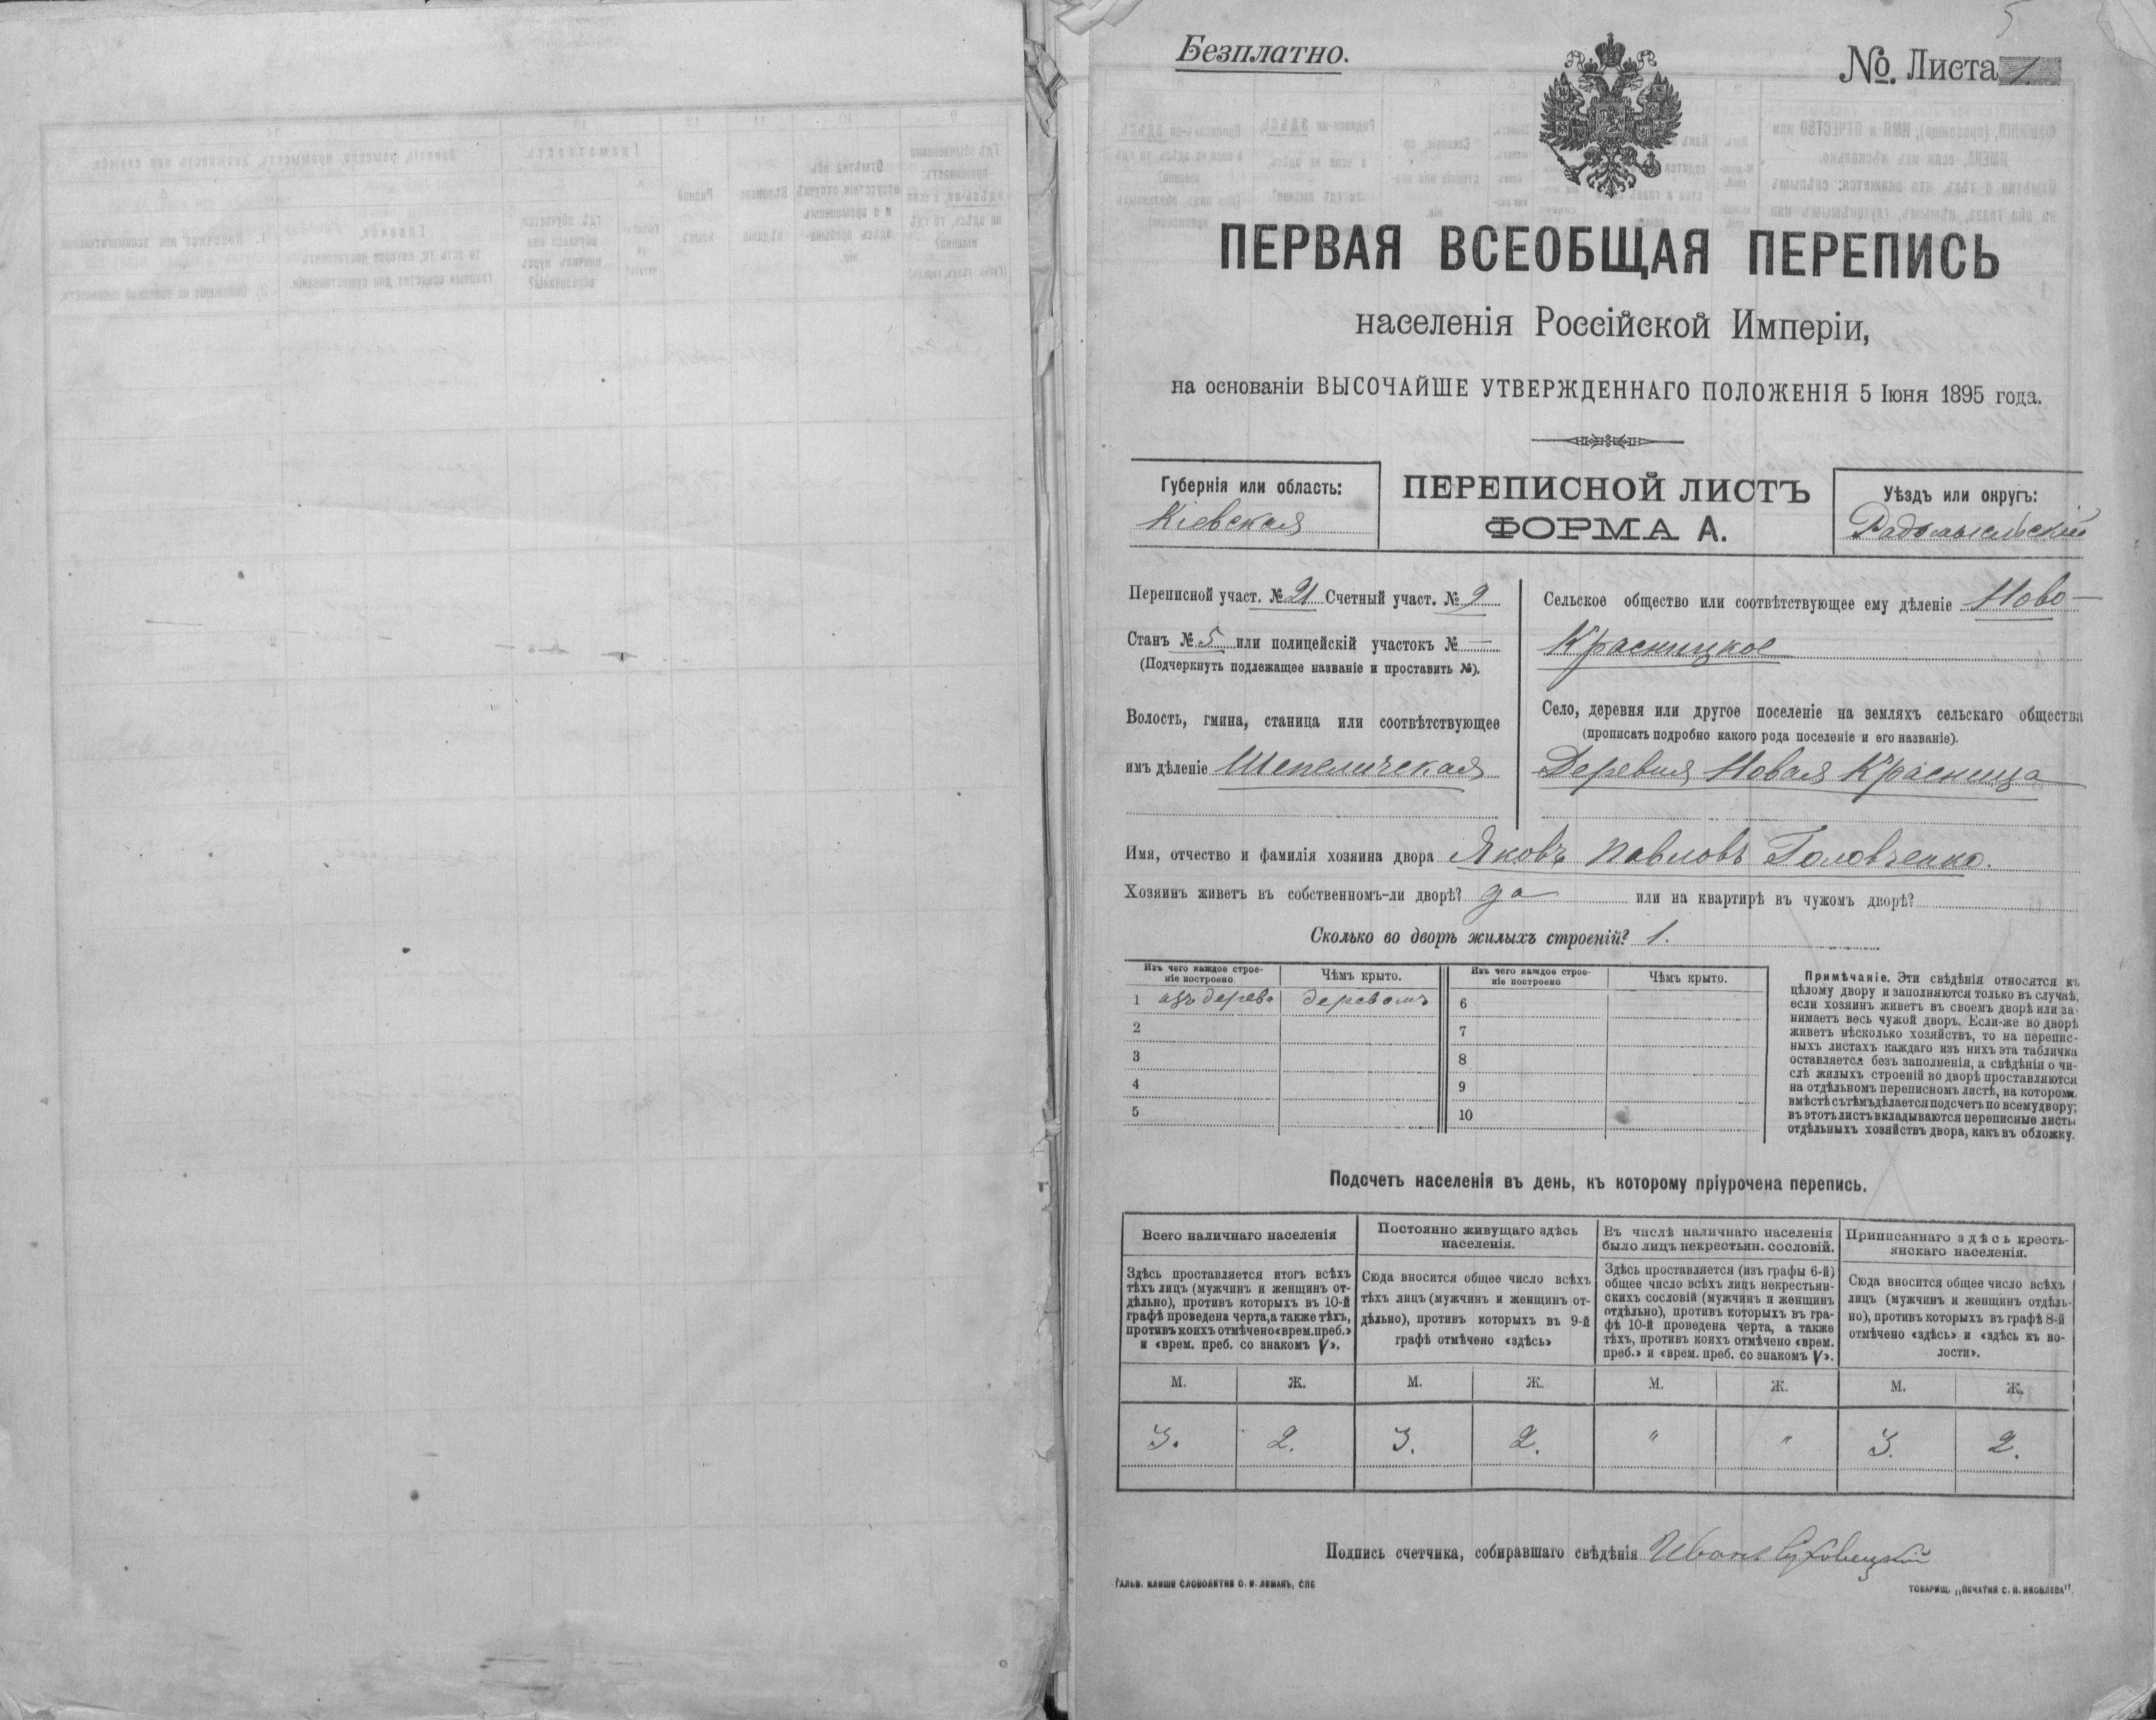 5
Безплатно.
№. Листа 1.
ПЕРВАЯ ВСЕОБЩАЯ ПЕРЕПИСЬ
населенія Россійской Имперіи,
на основаніи ВЫСОЧАЙШЕ УТВЕРЖДЕННАГО ПОЛОЖЕНІЯ 5 Іюня 1895 года.
Губернія или область:
Кіевская
ПЕРЕПИСНОЙ ЛИСТЪ
ФОРМА А.
Уѣздъ или округъ:
Радомысльскій
Переписной участ. № 21 Счетный участ. № 9
Станъ № 5 или полицейскій участокъ № —
(Подчеркнуть подлежащее названіе и проставить №).
Волость, гмина, станица или соотвѣтствующее
имъ дѣленіе Шепеличская
Сельское общество или соотвѣтствующее ему дѣленіе Ново-
Красницкое
Село, деревня или другое поселеніе на земляхъ сельскаго общества
(прописать подробно какого рода поселеніе и его названіе).
Деревня Новая Красница
Имя, отчество и фамилія хозяина двора Яковъ Павловъ Головченко.
Хозяинъ живетъ въ собственномъ-ли дворѣ? да или на квартирѣ въ чужомъ дворѣ?
Сколько во дворѣ жилыхъ строеній? 1.
Изъ чего каждое строе-
ніе построено
Чѣмъ крыто.
Изъ чего каждое строе-
ніе построено
Чѣмъ крыто.
1 изъ дерева деревомъ 6
2 7
3 8
4 9
5 10
Примѣчаніе. Эти свѣдѣнія относятся къ
цѣлому двору и заполняются только въ случаѣ,
если хозяинъ живетъ въ своемъ дворѣ или за-
нимаетъ весь чужой дворъ. Если-же во дворѣ
живетъ нѣсколько хозяйствъ, то на перепис-
ныхъ листахъ каждаго изъ нихъ эта табличка
оставляется безъ заполненія, а свѣдѣнія о чи-
слѣ жилыхъ строеній во дворѣ проставляются
на отдѣльномъ переписномъ листѣ, на которомъ
вмѣстѣ съ тѣмъ дѣлается подсчетъ по всему двору;
въ этотъ листъ вкладываются переписные листы
отдѣльныхъ хозяйствъ двора, какъ въ обложку.
Подсчетъ населенія въ день, къ которому пріурочена перепись.
Всего наличнаго населенія
Постоянно живущаго здѣсь
населенія.
Въ числѣ наличнаго населенія
было лицъ некрестьян. сословій.
Приписаннаго здѣсь кресть-
янскаго населенія.
Здѣсь проставляется итогъ всѣхъ
тѣхъ лицъ (мужчинъ и женщинъ от-
дѣльно), противъ которыхъ въ 10-й
графѣ проведена черта, а также тѣхъ,
противъ коихъ отмѣчено «врем. преб.»
и «врем. преб. со знакомъ V».
Сюда вносится общее число всѣхъ
тѣхъ лицъ (мужчинъ и женщинъ от-
дѣльно), противъ которыхъ въ 9-й
графѣ отмѣчено «здѣсь»
Здѣсь проставляется (изъ графы 6-й)
общее число всѣхъ лицъ некрестьян-
скихъ сословій (мужчинъ и женщинъ
отдѣльно), противъ которыхъ въ гра-
фѣ 10-й проведена черта, а также
тѣхъ, противъ коихъ отмѣчено «врем.
преб.» и «врем. преб. со знакомъ V».
Сюда вносится общее число всѣхъ
лицъ (мужчинъ и женщинъ отдѣль-
но), противъ которыхъ въ графѣ 8-й
отмѣчено «здѣсь» и «здѣсь къ во-
лости».
М. Ж. М. Ж. М. Ж. М. Ж.
3. 2. 3. 2. " " 3. 2.
Подпись счетчика, собиравшаго свѣдѣнія Иванъ Суховецкій
ГАЛЬВ. КЛИШЕ СЛОВОЛИТНИ О. И. ЛЕМАНЪ, СПБ
ТОВАРИЩ. „ПЕЧАТНЯ С. П. ЯКОВЛЕВА".